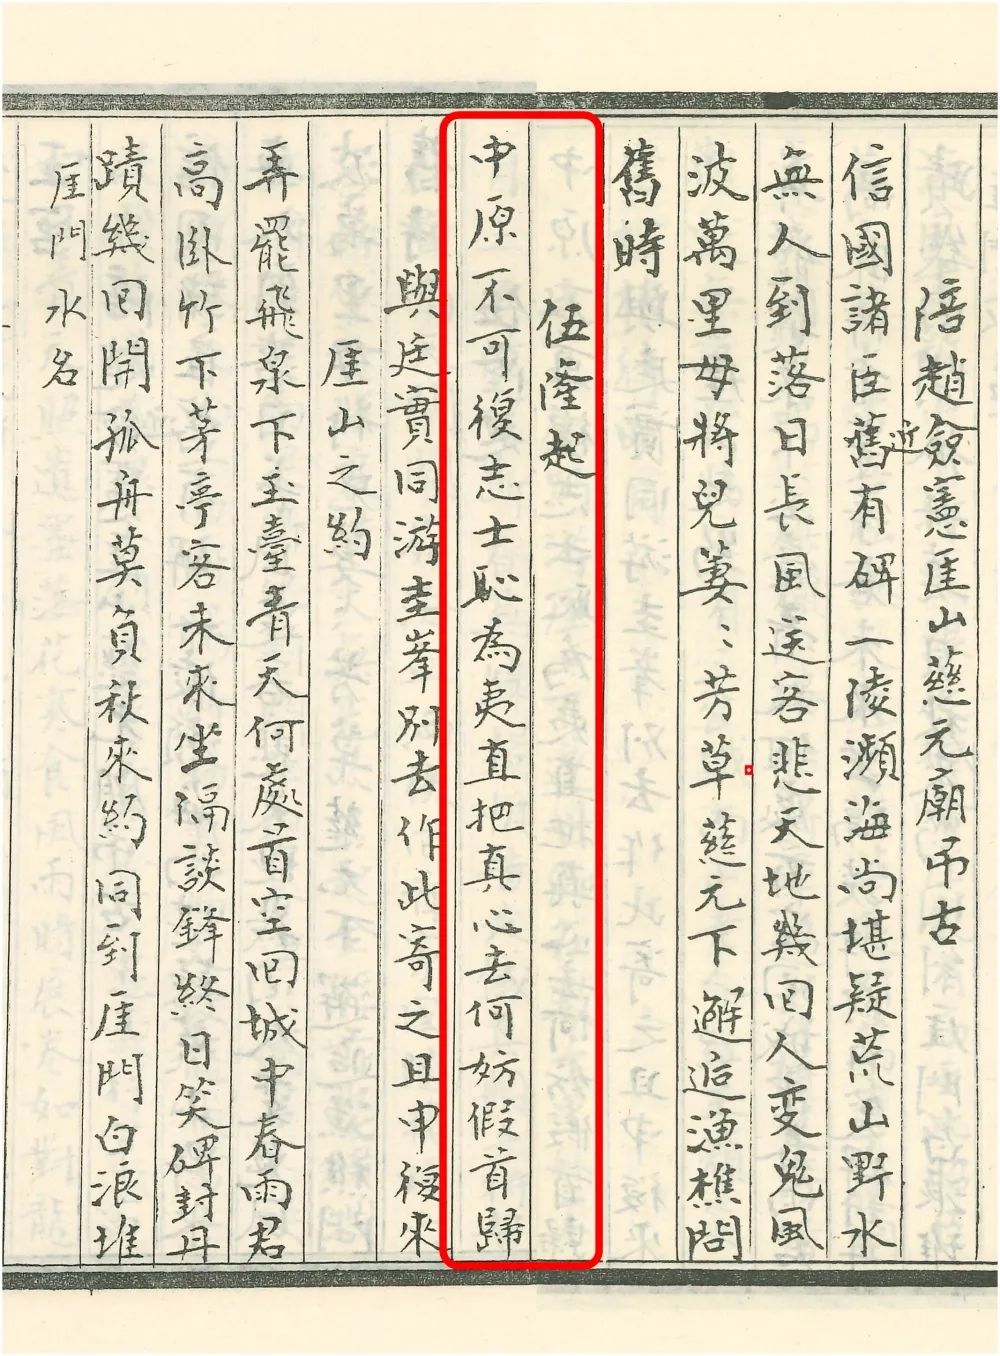 陪趙僉憲厓山慈元廟弔古
信國諸臣舊有碑一陵瀕海尚堪疑荒山野水
近
無人到落日長風送客悲天地幾回人變鬼風
波萬里母將兒萋〻芳草慈元下邂逅漁樵問
舊時
伍隆起
中原不可復志士恥為夷直把真心去何妨假首歸
與廷實同游圭峯別去作此寄之且申後來
厓山之約
弄罷飛泉下玉臺青天何處首空回城中春雨君
高臥竹下茅亭客未來坐隔談鋒終日笑碑封丹
蹟幾回開孤舟莫負秋來約同到厓門白浪堆
厓門水名